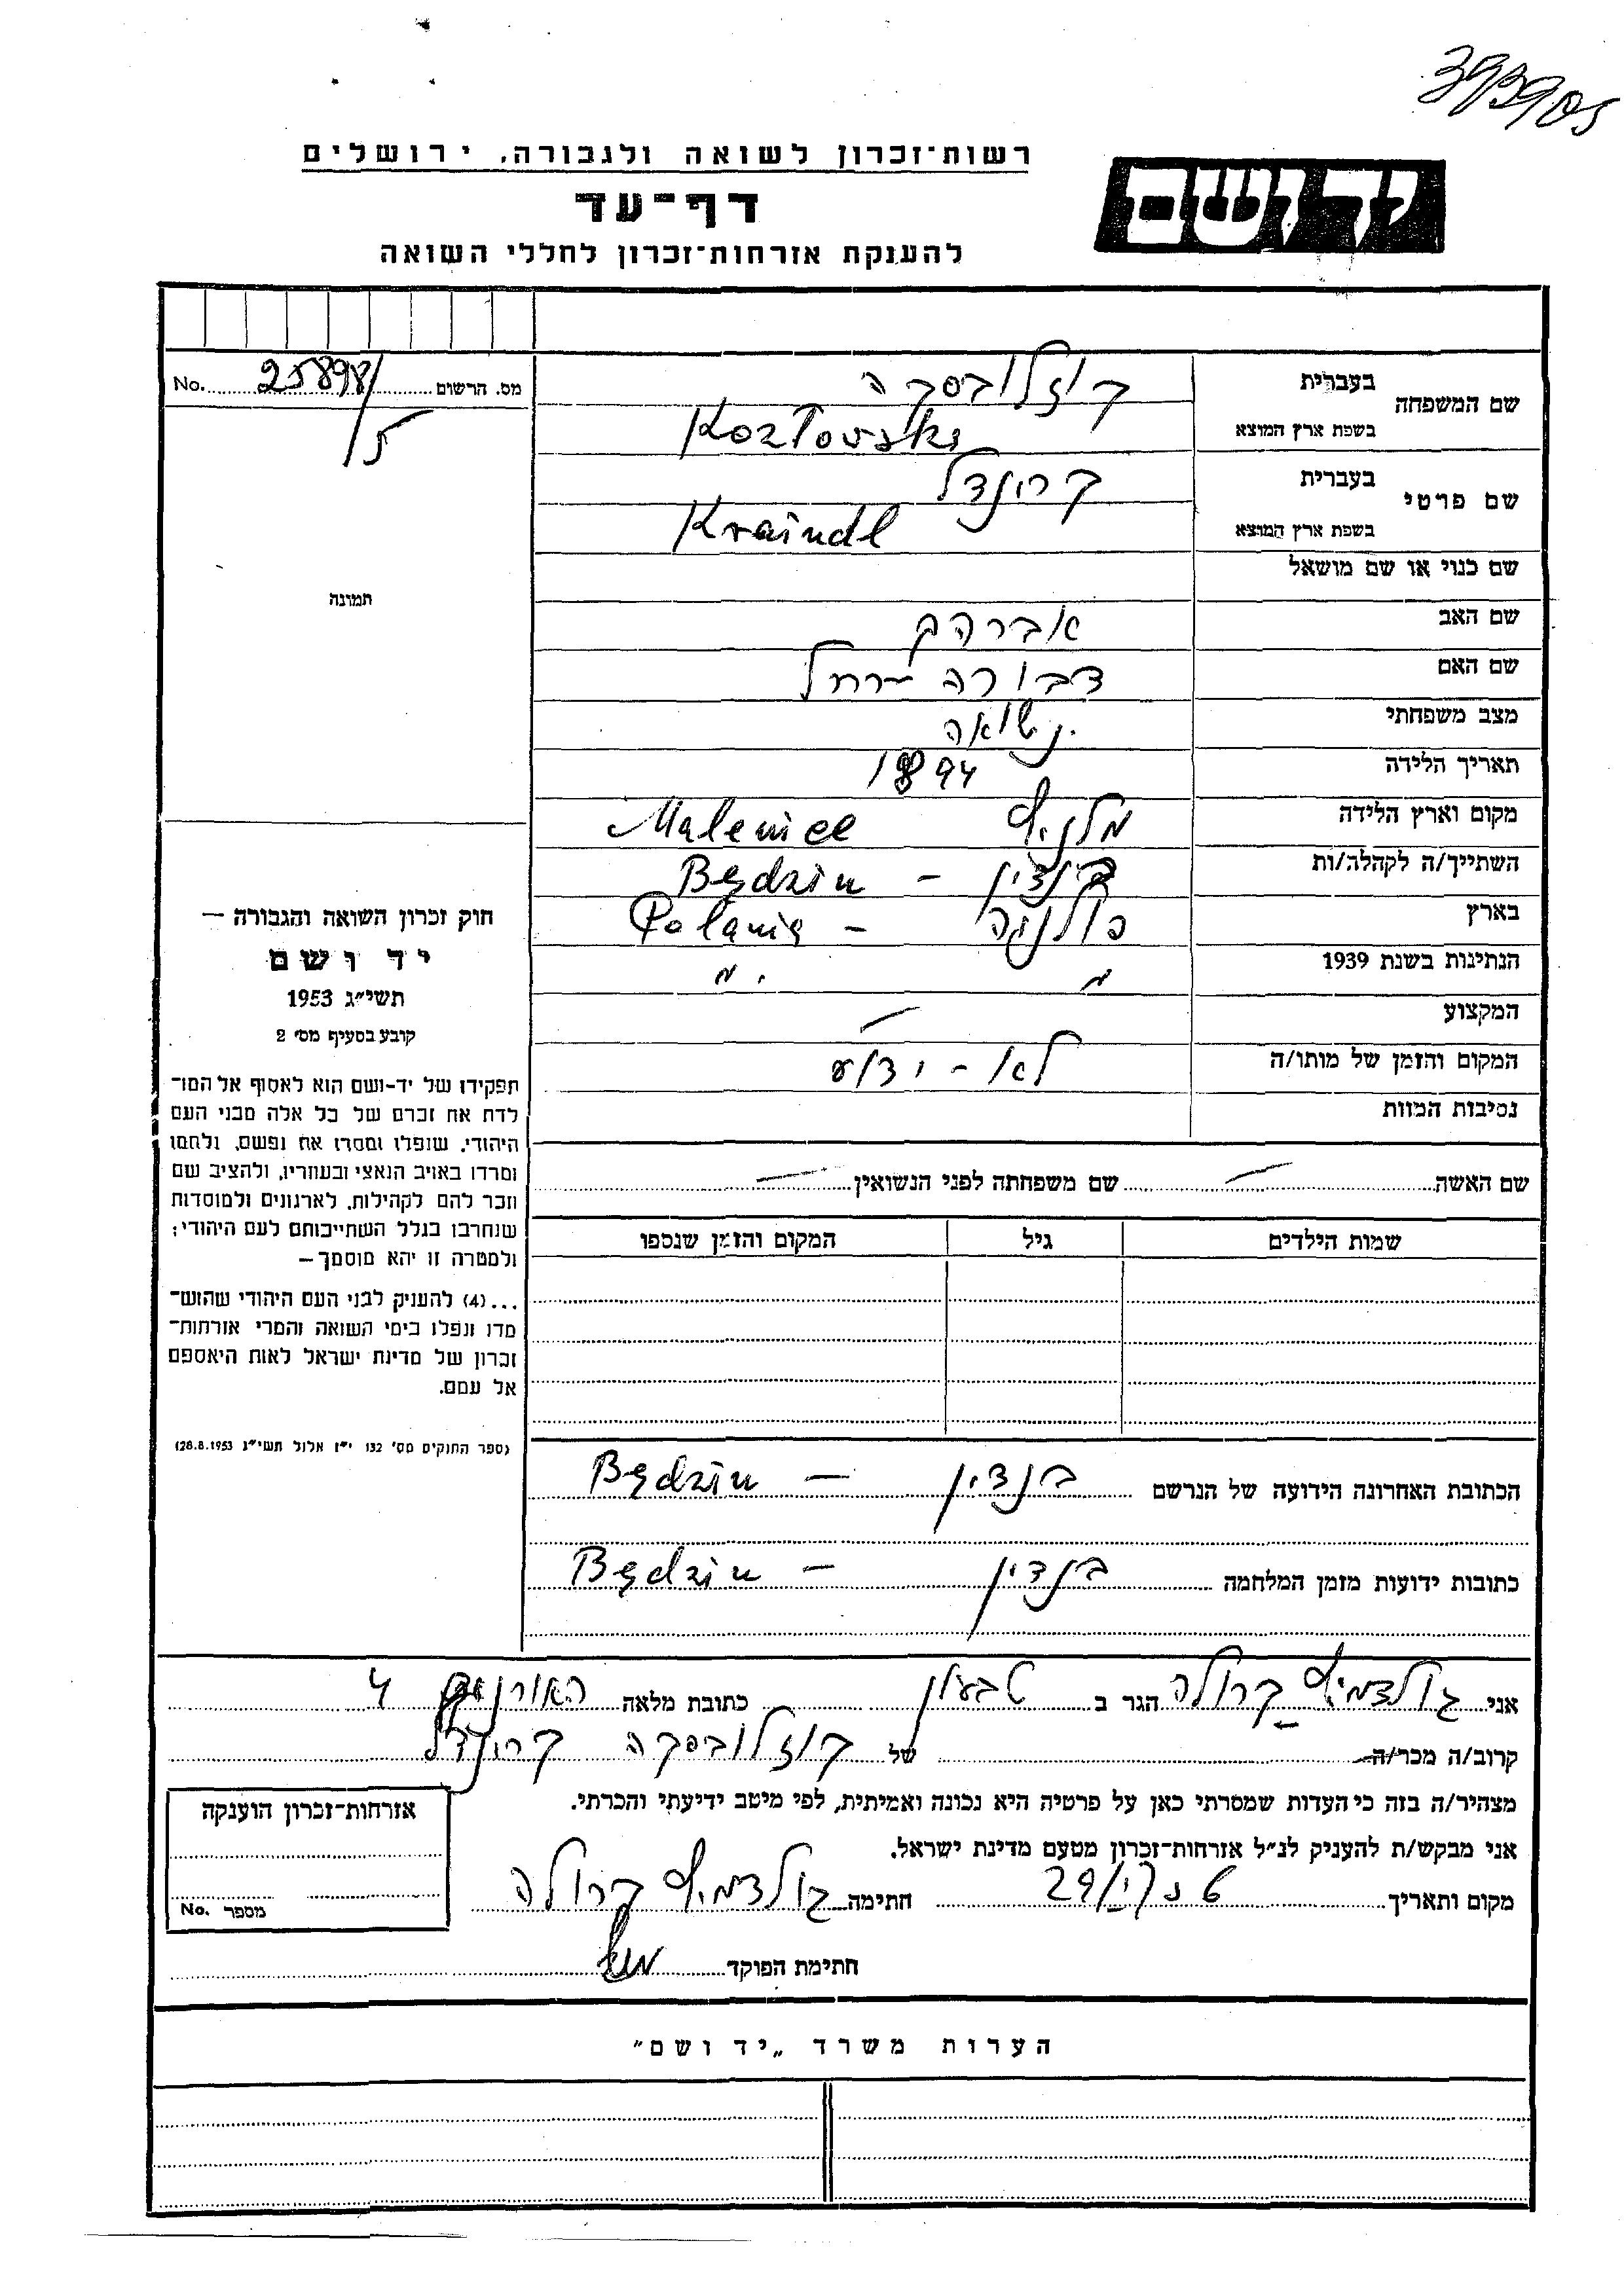 393905
רשות־זכרון לשואה ולגבורה, ירושלים
יד ושם
דף־עד
להענקת אזרחות־זכרון לחללי השואה
מס. הרשום No. 25898/5
שם המשפחה בעברית קוזלובסקה
בשפת ארץ המוצא Kozłovski
שם פרטי בעברית קריינדל
בשפת ארץ המוצא Kraindl
שם כנוי או שם מושאל
תמונה
שם האב אברהם
שם האם דבורה - רחל
מצב משפחתי נשואה
תאריך הלידה 1894
מקום וארץ הלידה Malenice
השתייך/ה לקהלה/ות בנדין - Będzin
בארץ פולניה - Polania
הנתינות בשנת 1939 " "
המקצוע —
המקום והזמן של מותו/ה לא - ידוע
נסיבות המוות
חוק זכרון השואה והגבורה —
יד ושם
תשי״ג 1953
קובע בסעיף מס׳ 2
תפקידו של יד-ושם הוא לאסוף אל המו־
לדת את זכרם של כל אלה מבני העם
היהודי, שנפלו ומסרו את נפשם, ולחמו
ומרדו באויב הנאצי ובעוזריו, ולהציב שם
וזכר להם לקהילות, לארגונים ולמוסדות
שנחרבו בגלל השתייכותם לעם היהודי;
ולמטרה זו יהא מוסמך —
...(4) להעניק לבני העם היהודי שהוש־
מדו ונפלו בימי השואה והמרי אזרחות־
זכרון של מדינת ישראל לאות היאספם
אל עמם.
(ספר החוקים מס׳ 132 י״ז אלול תשי״ג 28.8.1953)
שם האשה — שם משפחתה לפני הנשואין —
שמות הילדים גיל המקום והזמן שנספו
הכתובת האחרונה הידועה של הנרשם בנדין — Będzin
כתובות ידועות מזמן המלחמה בנדין — Będzin
אני גולדמן קרולה הגר ב טבעון כתובת מלאה האורנים 4
קרוב/ה מכר/ה של קוזלובסקה קריינדל
מצהיר/ה בזה כי העדות שמסרתי כאן על פרטיה היא נכונה ואמיתית, לפי מיטב ידיעתי והכרתי.
אני מבקש/ת להעניק לנ״ל אזרחות־זכרון מטעם מדינת ישראל.
מקום ותאריך 29/ חתימה גולדמן קרולה
חתימת הפוקד
אזרחות־זכרון הוענקה
מספר No.
הערות משרד „יד ושם״